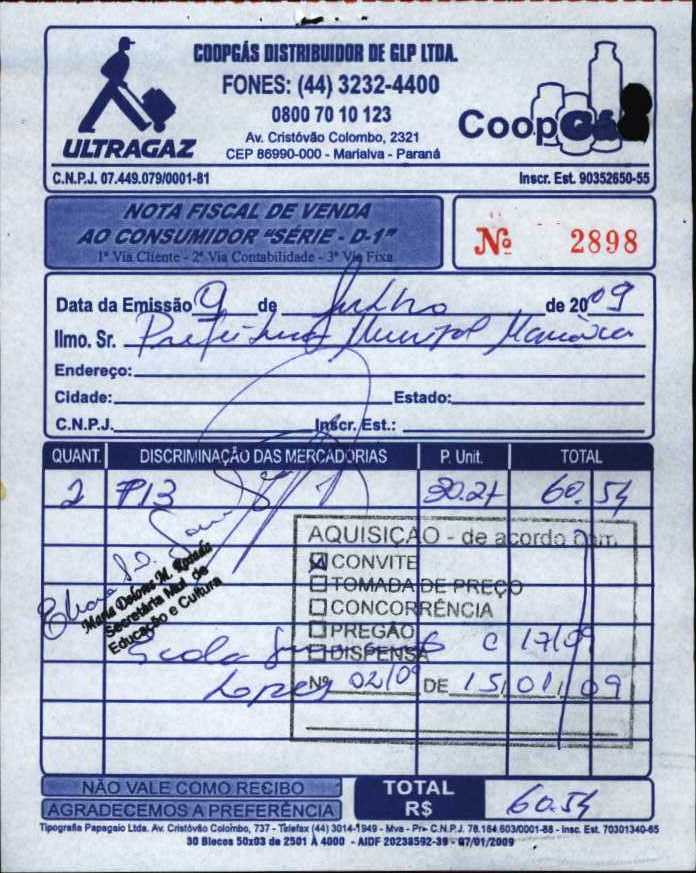 COOPGÁS DISTRIBUIDOR DE GLP LTDA.
FONES: (44) 3232-4400
0800 70 10 123
Av. Cristóvão Colombo, 2321
CEP 86990-000 - Marialva - Paraná
ULTRAGAZ
CoopGás
C.N.P.J. 07.449.079/0001-81
Inscr. Est. 90352650-55
NOTA FISCAL DE VENDA
AO CONSUMIDOR "SÉRIE - D-1"
1ª Via Cliente - 2ª Via Contabilidade - 3ª Via Fixa
Nº 2898
Data da Emissão 9 de Julho de 2009
Ilmo. Sr. Prefeitura Municipal
Endereço:
Cidade: Estado:
C.N.P.J. Inscr. Est.:
QUANT. DISCRIMINAÇÃO DAS MERCADORIAS P. Unit. TOTAL
2 P13 30.27 60.54
AQUISIÇÃO - de acordo com:
CONVITE
TOMADA DE PREÇO
CONCORRÊNCIA
PREGÃO
DISPENSA
C 17/09
Nº 02/09 DE 15/01/09
Maria Delome M. Rosada
Secretária Mul. de
Educação e Cultura
Lopes
NÃO VALE COMO RECIBO
AGRADECEMOS A PREFERÊNCIA
TOTAL
R$ 60.54
Tipografia Papagaio Ltda. Av. Cristóvão Colombo, 737 - Telefax (44) 3014-1949 - Mva - Pr - C.N.P.J. 78.164.603/0001-88 - Insc. Est. 70301340-65
30 Blocos 50x03 de 2501 À 4000 - AIDF 20238592-39 - 07/01/2009